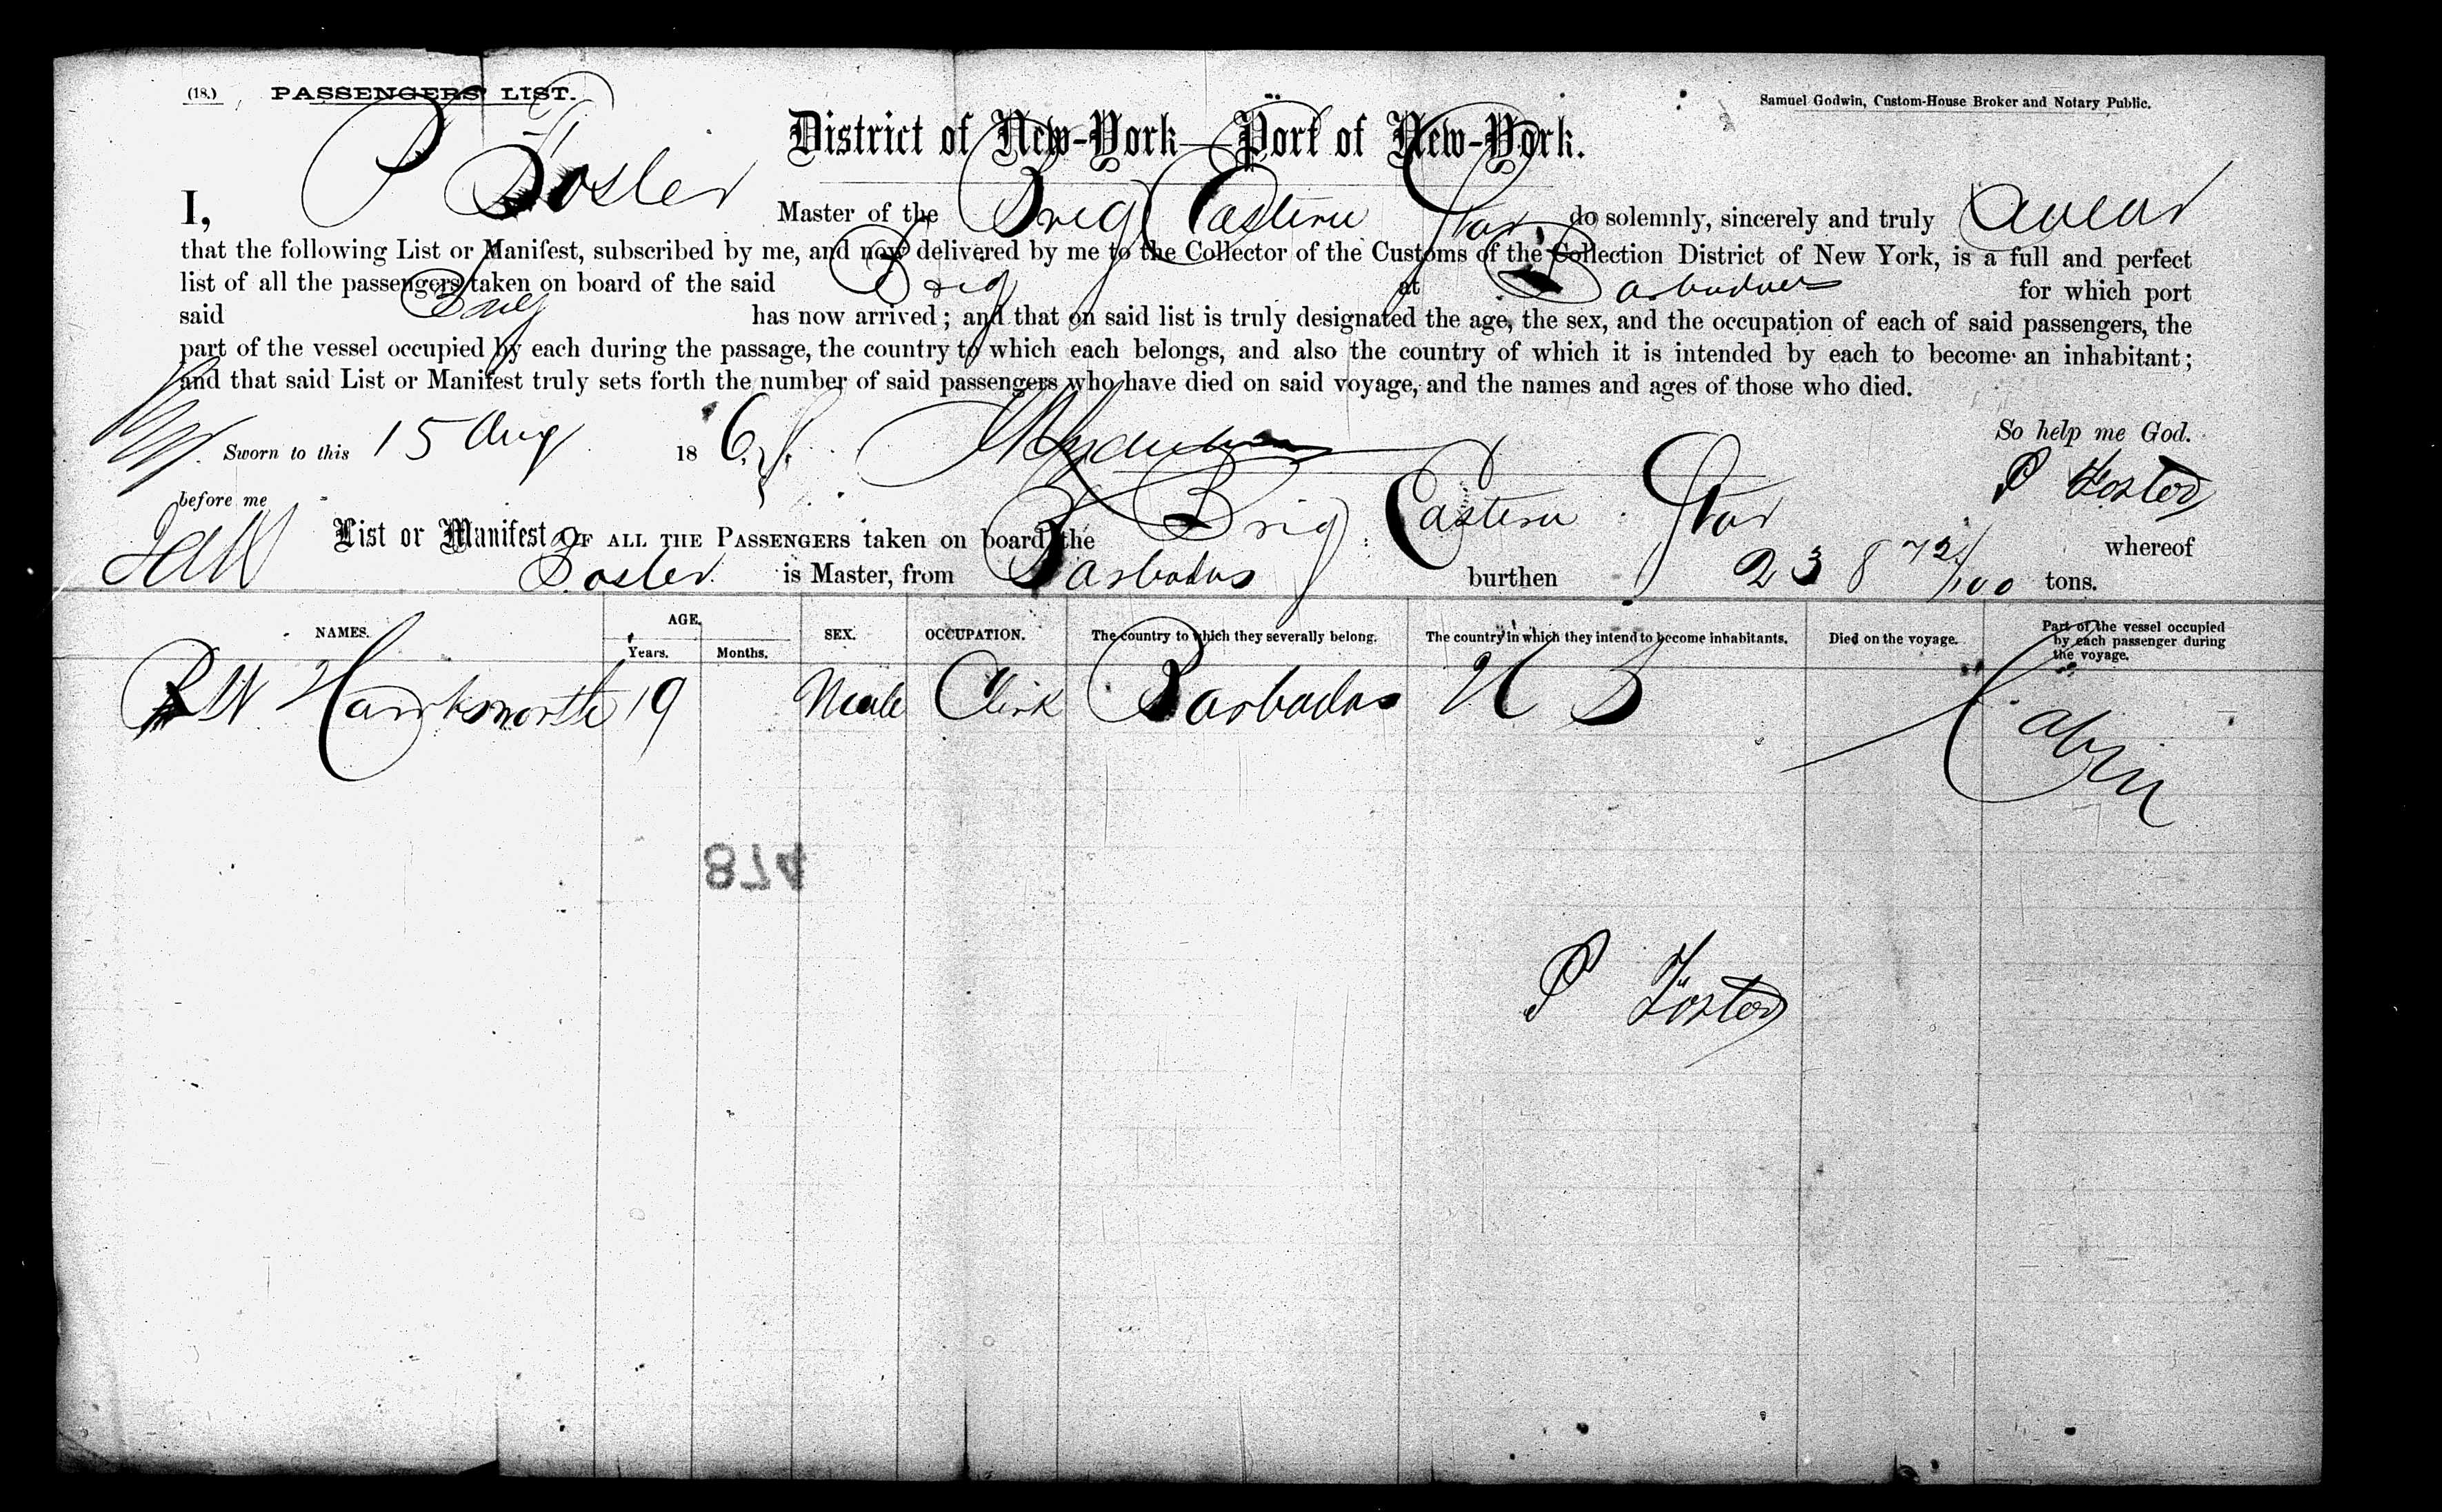 (18.) PASSENGERS' LIST. Samuel Godwin, Custom-House Broker and Notary Public.
District of New-York—Port of New-York.
I, P Foster Master of the Brig Eastern Star do solemnly, sincerely and truly swear
that the following List or Manifest, subscribed by me, and now delivered by me to the Collector of the Customs of the Collection District of New York, is a full and perfect
list of all the passengers taken on board of the said Brig at Barbadoes for which port
said Brig has now arrived; and that on said list is truly designated the age, the sex, and the occupation of each of said passengers, the
part of the vessel occupied by each during the passage, the country to which each belongs, and also the country of which it is intended by each to become an inhabitant;
and that said List or Manifest truly sets forth the number of said passengers who have died on said voyage, and the names and ages of those who died.
So help me God.
Sworn to this 15 Aug 186
P Foster
before me
List or Manifest OF ALL THE PASSENGERS taken on board the Brig Eastern Star whereof
Foster is Master, from Barbados burthen 238 72/100 tons.
NAMES. AGE. SEX. OCCUPATION. The country to which they severally belong. The country in which they intend to become inhabitants. Died on the voyage. Part of the vessel occupied by each passenger during the voyage.
Years. Months.
Hawksworth 19 Male Clerk Barbados Cabin
874
P Foster